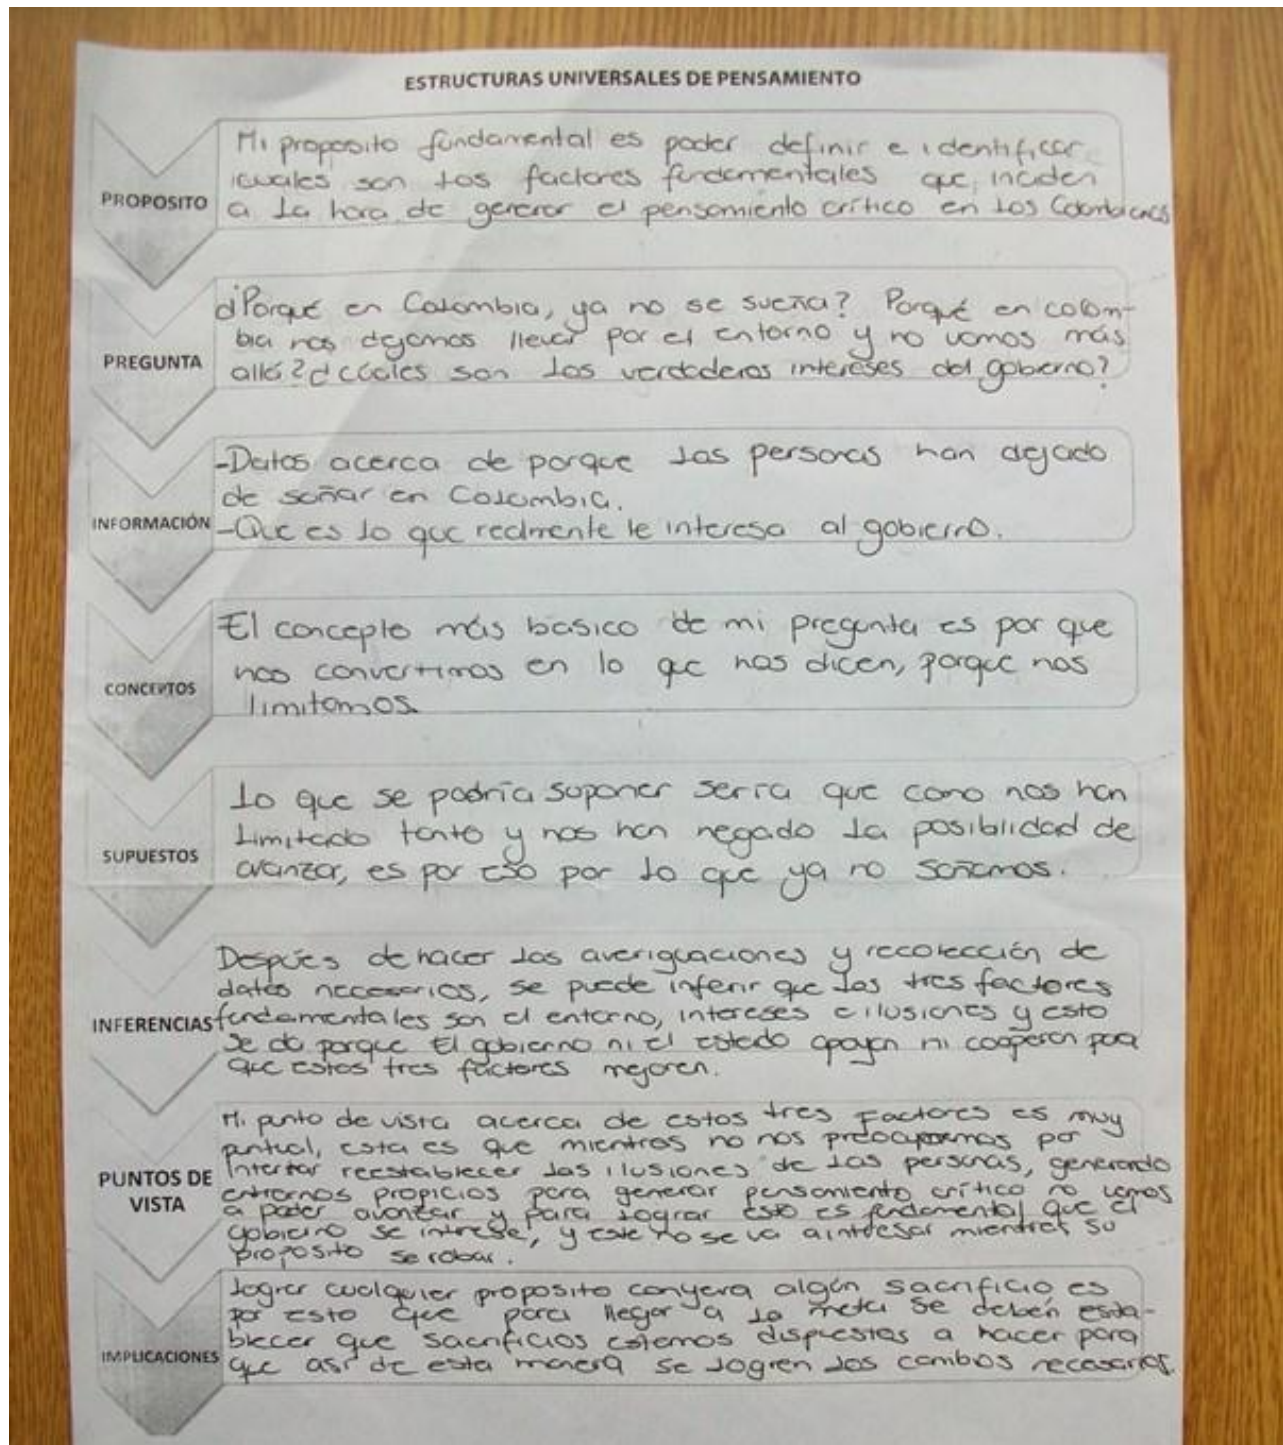 ESTRUCTURAS UNIVERSALES DE PENSAMIENTO
PROPOSITO
Mi proposito fundamental es poder definir e identificar
cuales son los factores fundamentales que inciden
a la hora de generar el pensamiento crítico en los Colombianos
PREGUNTA
¿Porqué en Colombia, ya no se sueña? Porqué en colom-
bia nos dejamos llevar por el entorno y no vamos más
allá? ¿cúales son los verdaderos intereses del gobierno?
INFORMACIÓN
-Datos acerca de porque las personas han dejado
de soñar en Colombia.
-Que es lo que realmente le interesa al gobierno.
CONCEPTOS
El concepto más basico de mi pregunta es por que
nos convertimos en lo que nos dicen, porque nos
limitamos.
SUPUESTOS
Lo que se podría suponer sería que como nos han
limitado tanto y nos han negado la posiblidad de
avanzar, es por eso por lo que ya no soñamos.
INFERENCIAS
Despúes de hacer las averiguaciones y recolección de
datos necesarios, se puede inferir que los tres factores
fundamentales son el entorno, intereses e ilusiones y esto
se da porque El gobierno ni el estado apoyan ni cooperan para
que estos tres factores mejoren.
PUNTOS DE
VISTA
Mi punto de vista acerca de estos tres factores es muy
puntual, esta es que mientras no nos preocupemos por
intentar reestablecer las ilusiones de las personas, generando
entornos propicios para generar pensamiento crítico no vamos
a poder avanzar y para lograr esto es fundamental que el
gobierno se interese, y este no se va a interesar mientras su
proposito se robar.
IMPLICACIONES
Lograr cualquier proposito conyeva algún sacrificio es
por esto que para llegar a la meta se deben esta-
blecer que sacrificios estamos dispuestos a hacer para
que así de esta manera se logren los cambios necesarios.